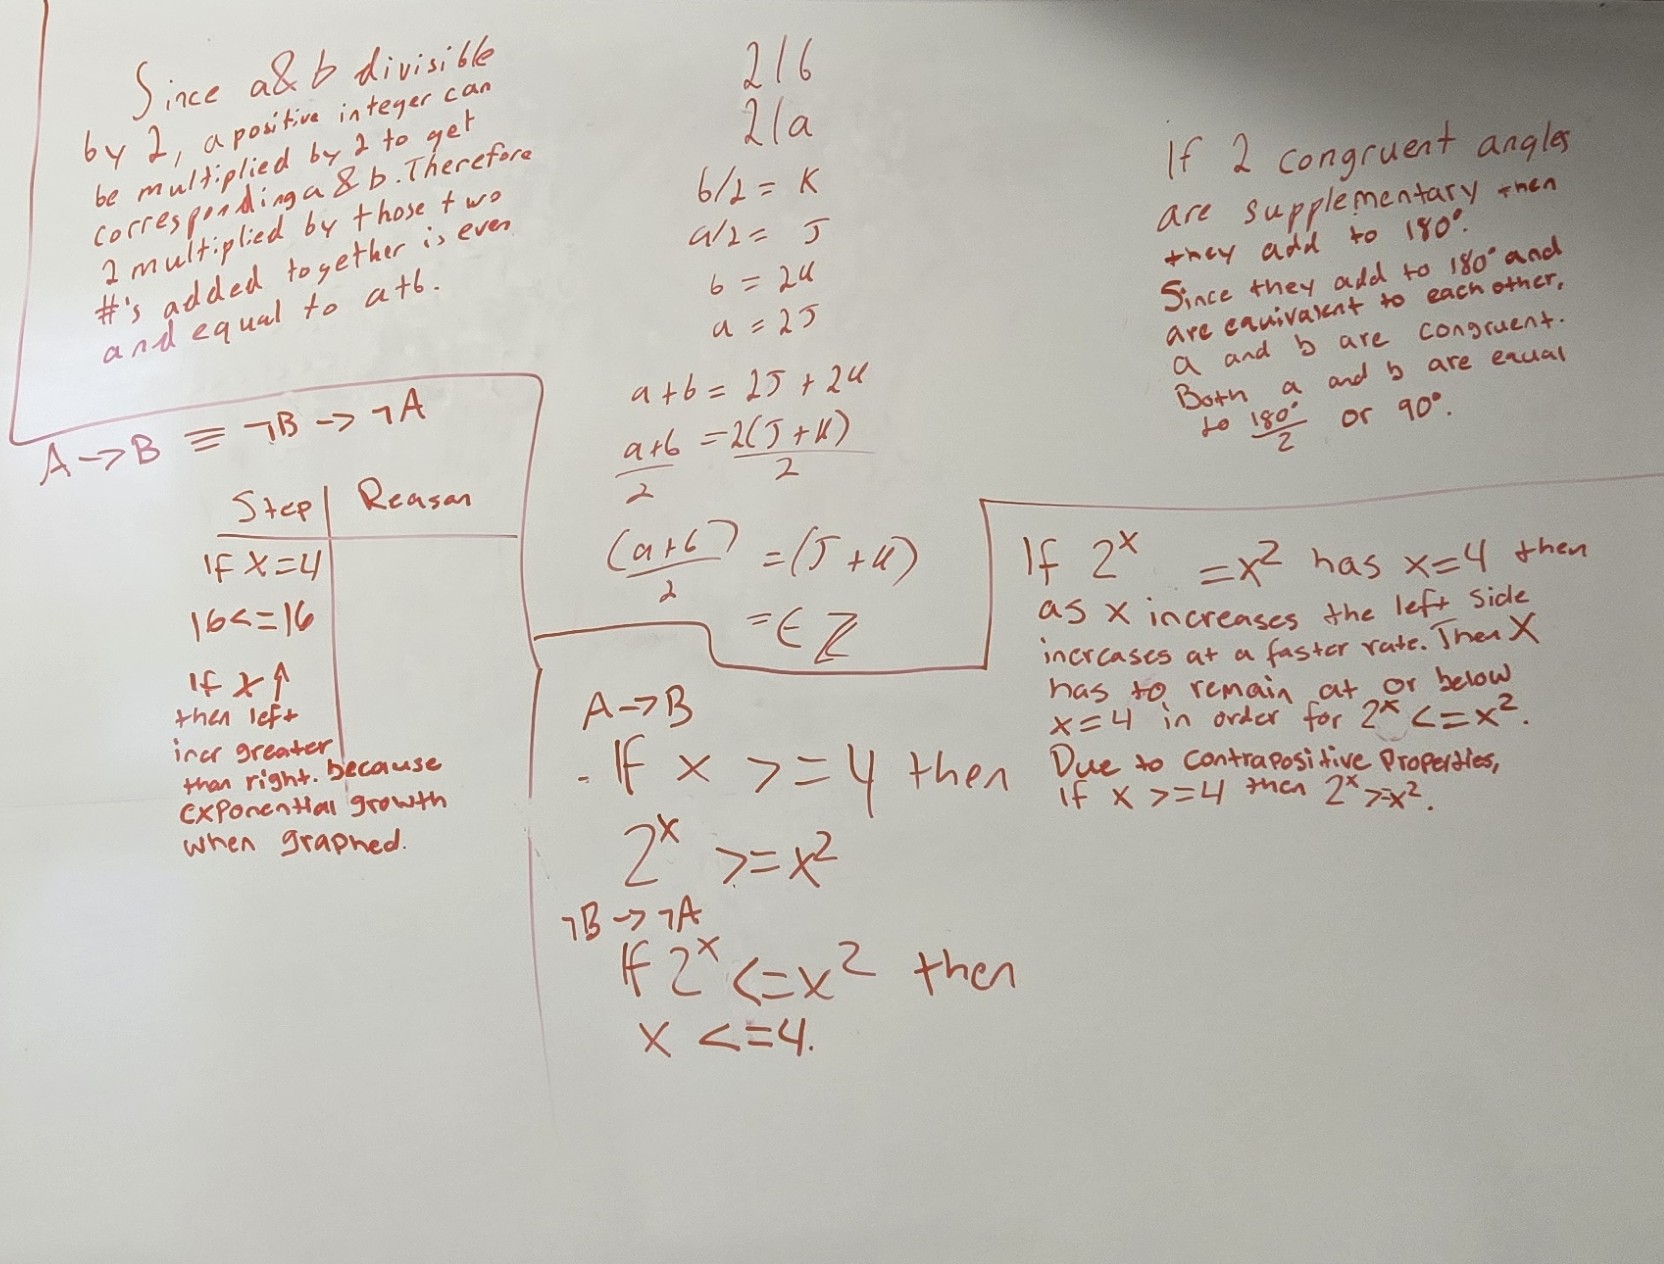 Since a & b divisible
by 2, a positive integer can
be multiplied by 2 to get
corresponding a & b. Therefore
2 multiplied by those two
#'s added together is even
and equal to a+b.
2|b
2|a
b/2 = K
a/2 = J
b = 2K
a = 2J
a+b = 2J + 2K
a+b = 2(J+K)
2 2
(a+b) = (J+K)
2
= ∈ ℤ
If 2 congruent angles
are supplementary then
they add to 180°.
Since they add to 180° and
are equivalent to each other,
a and b are congruent.
Both a and b are equal
to 180°/2 or 90°.
A → B ≡ ¬B → ¬A
Step | Reason
If X=4
16<=16
If x ↑
then left
incr greater
than right. because
exponential growth
when graphed.
A → B
If x >= 4 then
2^x >= x²
¬B → ¬A
If 2^x <= x² then
x <= 4.
If 2^x = x² has x=4 then
as x increases the left side
increases at a faster rate. Then X
has to remain at or below
x=4 in order for 2^x <= x².
Due to contrapositive Properties,
If x >= 4 then 2^x >= x².